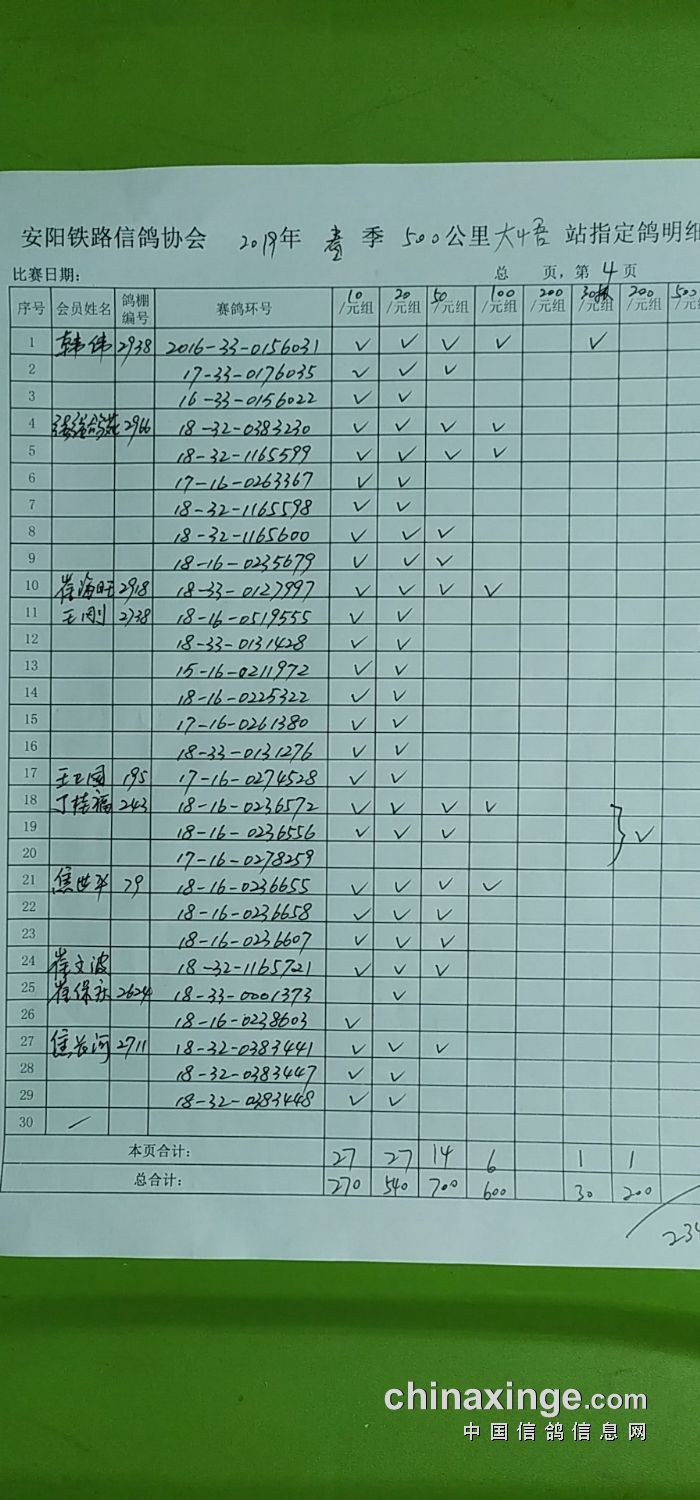 安阳铁路信鸽协会 2019年 春 季 500公里大悟 站指定鸽明细
比赛日期: 总 页, 第 4 页
序号 会员姓名 鸽棚编号 赛鸽环号 10/元组 20/元组 50/元组 100/元组 200/元组 30/元组 200/元组 500/元组
1 韩伟 2938 2016-33-0156031 ✓ ✓ ✓ ✓ ✓
2 17-33-0176035 ✓ ✓ ✓
3 16-33-0156022 ✓ ✓
4 2966 18-32-0383230 ✓ ✓ ✓ ✓
5 18-32-1165599 ✓ ✓ ✓ ✓
6 17-16-0263367 ✓ ✓
7 18-32-1165598 ✓ ✓
8 18-32-1165600 ✓ ✓ ✓
9 18-16-0235679 ✓ ✓ ✓
10 崔海旺 2918 18-33-0127997 ✓ ✓ ✓ ✓
11 王刚 2738 18-16-0519555 ✓ ✓
12 18-33-0131428 ✓ ✓
13 15-16-0211972 ✓ ✓
14 18-16-0225322 ✓ ✓
15 17-16-0261380 ✓ ✓
16 18-33-0131276 ✓ ✓
17 王卫国 195 17-16-0274528 ✓ ✓
18 丁桂福 243 18-16-0236572 ✓ ✓ ✓ ✓
19 18-16-0236556 ✓ ✓ ✓ } ✓
20 17-16-0278259
21 焦世平 79 18-16-0236655 ✓ ✓ ✓ ✓
22 18-16-0236658 ✓ ✓ ✓
23 18-16-0236607 ✓ ✓ ✓
24 崔文波 18-32-1165721 ✓ ✓ ✓
25 崔保庆 2624 18-33-0001373 ✓
26 18-16-0238603 ✓
27 焦长河 2711 18-32-0383441 ✓ ✓ ✓
28 18-32-0383447 ✓ ✓
29 18-32-0383448 ✓ ✓
30 /
本页合计: 27 27 14 6 1 1
总合计: 270 540 700 600 30 200
234
chinaxinge.com
中国信鸽信息网